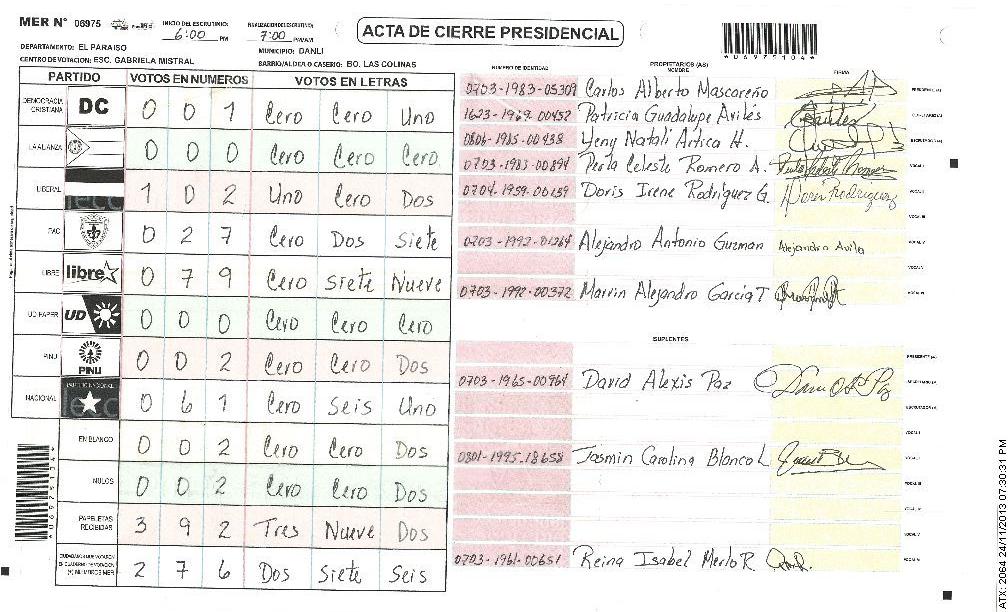 MER N° 06975
INICIO DEL ESCRUTINIO: 6:00 PM
FINALIZACION DEL ESCRUTINIO: 7:00 PM/AM
ACTA DE CIERRE PRESIDENCIAL
*06975104*
DEPARTAMENTO: EL PARAISO
MUNICIPIO: DANLI
CENTRO DE VOTACION: ESC. GABRIELA MISTRAL
BARRIO/ALDEA O CASERIO: BO. LAS COLINAS
PARTIDO VOTOS EN NUMEROS VOTOS EN LETRAS
DEMOCRACIA CRISTIANA DC 0 0 1 Cero Cero Uno
LA ALIANZA 0 0 0 Cero Cero Cero
LIBERAL 1 0 2 Uno Cero Dos
PAC 0 2 7 Cero Dos Siete
LIBRE libre 0 7 9 Cero Siete Nueve
UD FAPER UD 0 0 0 Cero Cero Cero
PINU PINU 0 0 2 Cero Cero Dos
NACIONAL PARTIDO NACIONAL 0 6 1 Cero Seis Uno
EN BLANCO 0 0 2 Cero Cero Dos
NULOS 0 0 2 Cero Cero Dos
PAPELETAS RECIBIDAS 3 9 2 Tres Nueve Dos
2 7 6 Dos Siete Seis
NUMERO DE IDENTIDAD PROPIETARIOS (AS) NOMBRE FIRMA
0703-1983-05309 Carlos Alberto Mascareño PRESIDENTE(A)
1623-1969-00452 Patricia Guadalupe Avilés
0806-1985-00438 Yeny Natali Artica H. ESCRUTADOR(A)
0703-1983-00894 Perla Celeste Romero A. VOCAL I
0704-1959-00159 Doris Irene Rodriguez G. Doris Rodriguez VOCAL II
VOCAL III
0703-1992-01264 Alejandro Antonio Guzman Alejandro Avila VOCAL IV
VOCAL V
0703-1992-00372 Marvin Alejandro Garcia T VOCAL VI
SUPLENTES
PRESIDENTE (A)
0703-1965-00964 David Alexis Paz SECRETARIO (A)
ESCRUTADOR(A)
VOCAL I
0801-1995-18658 Jasmin Carolina Blanco L VOCAL II
VOCAL III
VOCAL IV
VOCAL V
0703-1961-00651 Reina Isabel Merlo R. VOCAL VI
*06975104*
ATX: 2064 24/11/2013 07:30:31 PM